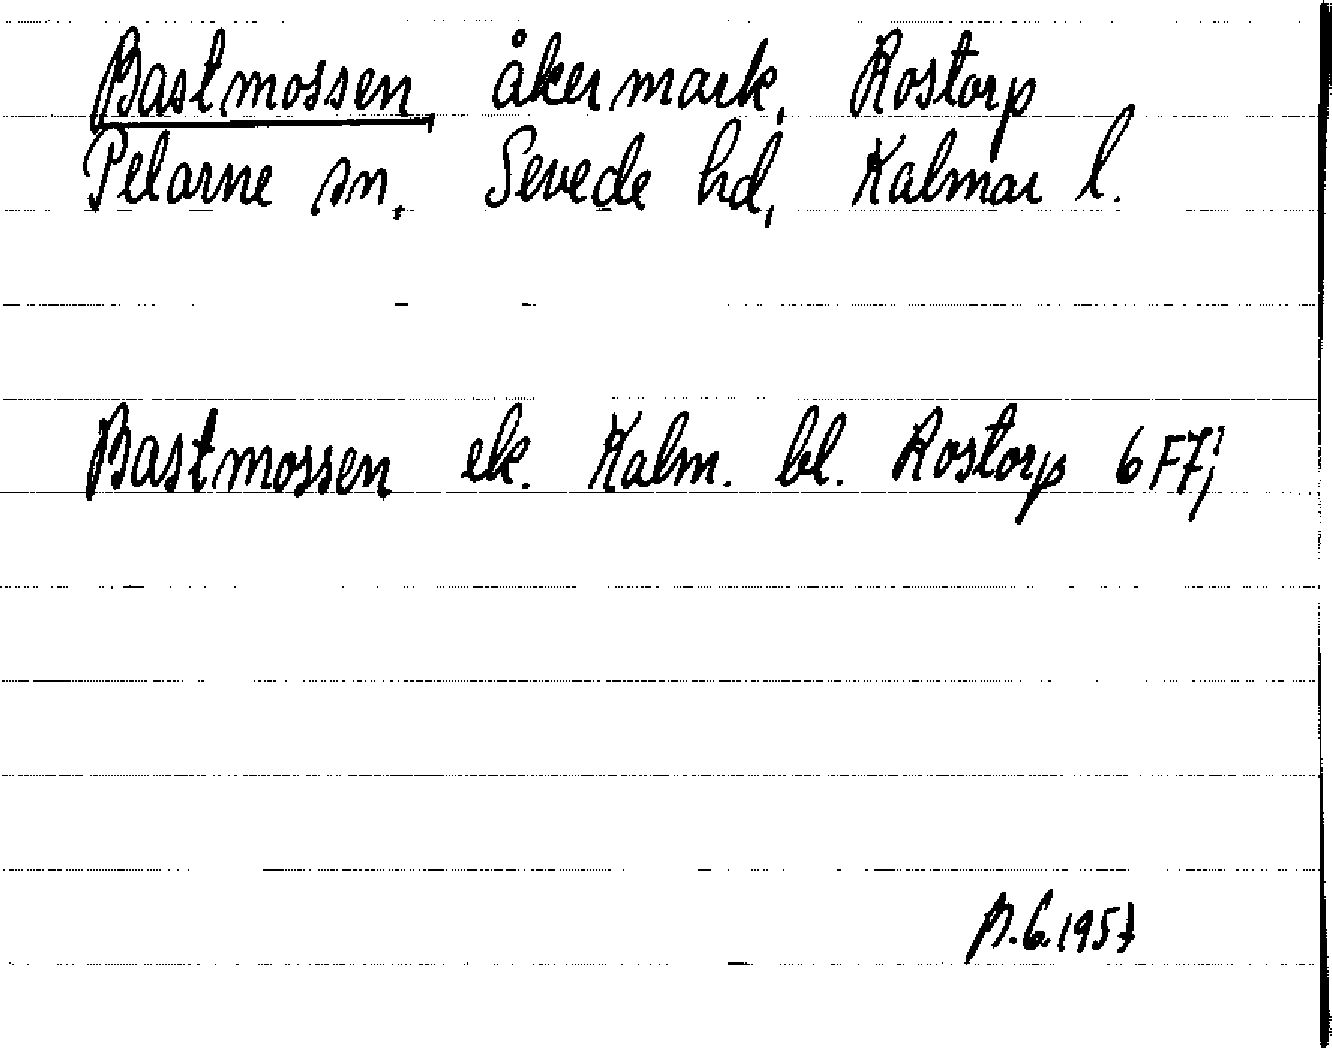 Bastmossen, åkermark, Rostorp
Pelarne sn, Sevede hd, Kalmar l.
Bastmossen ek. Kalm. bl. Rostorp 6F7j
B.G.1957